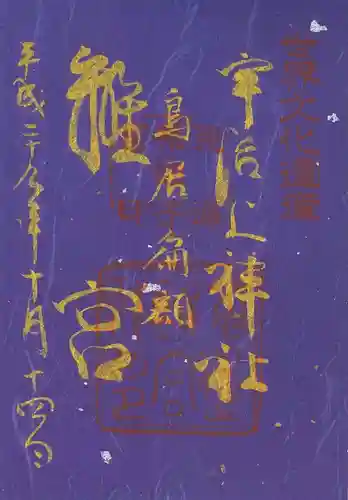 世界文化遺産
宇治上神社
鳥居扁額
離宮
平成二十八年十月十四日